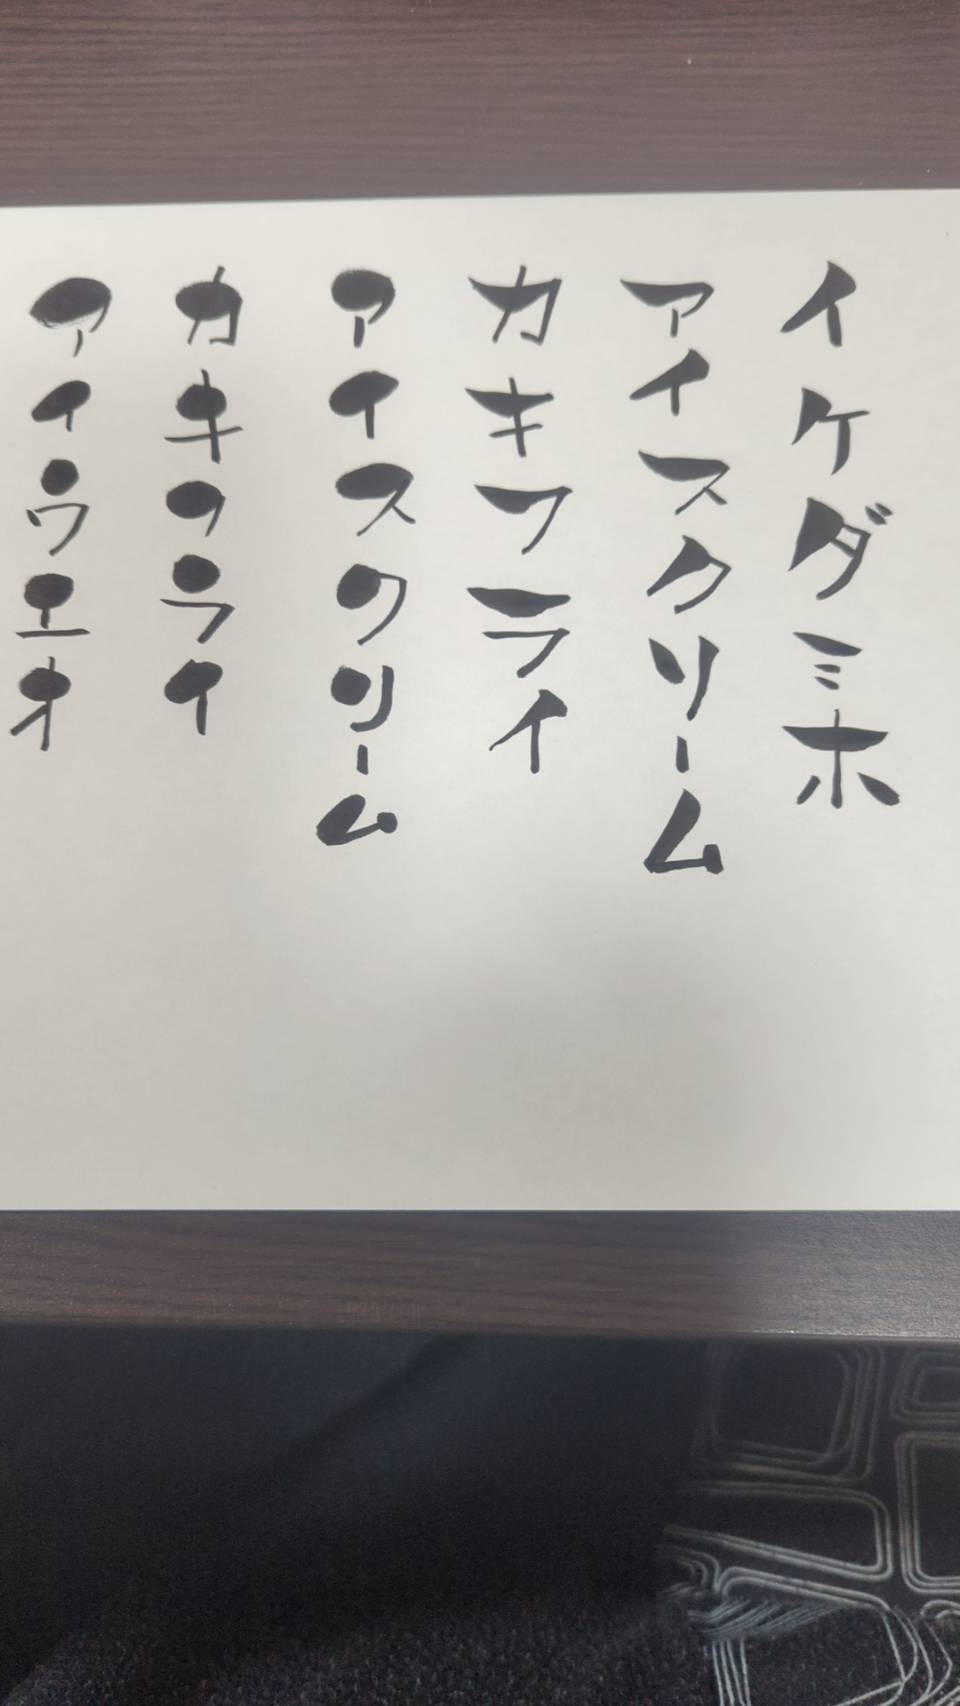 イケダミホ
アイスクリーム
カキフライ
アイスクリーム
カキフライ
アイウエオ